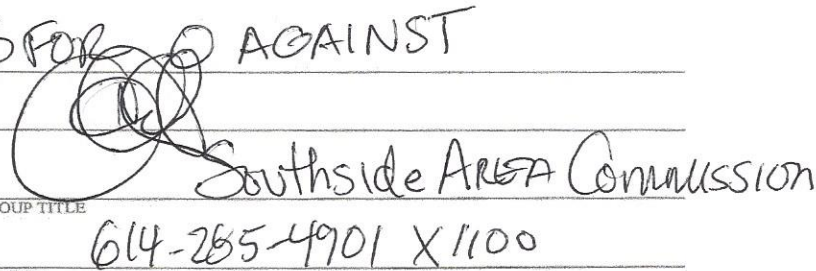 FOR 0 AGAINST
Southside AREA Commission
OUP TITLE
614-285-4901 X1100